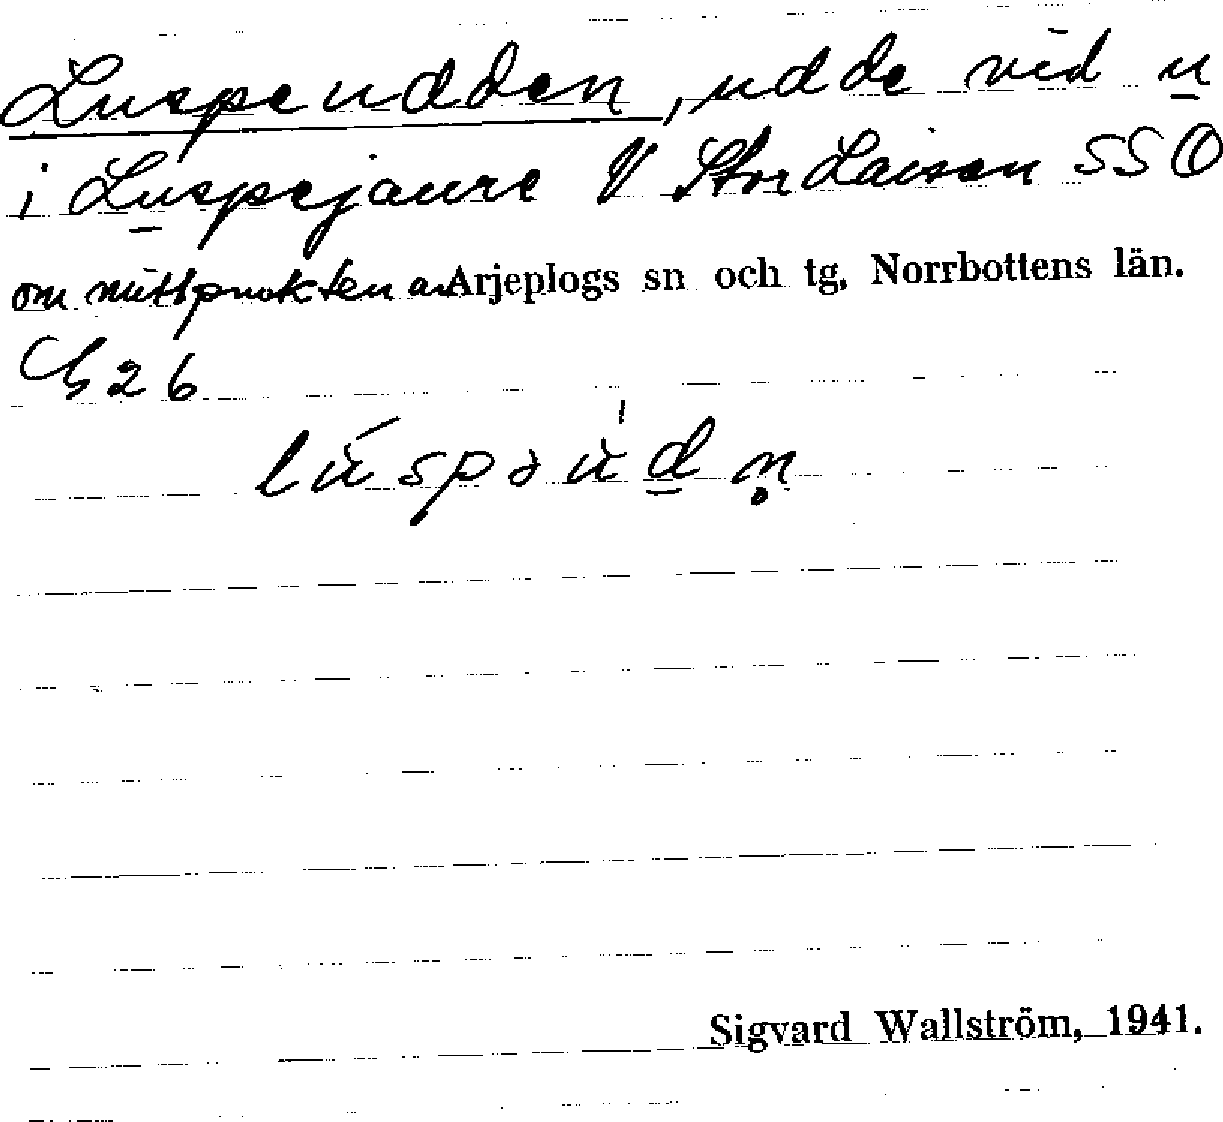 Luspeudden, udde vid u
i Luspejaure V Storlaisan SSO
om mittpunkten av Arjeplogs sn och tg, Norrbottens län.
G 26
Sigvard Wallström, 1941.